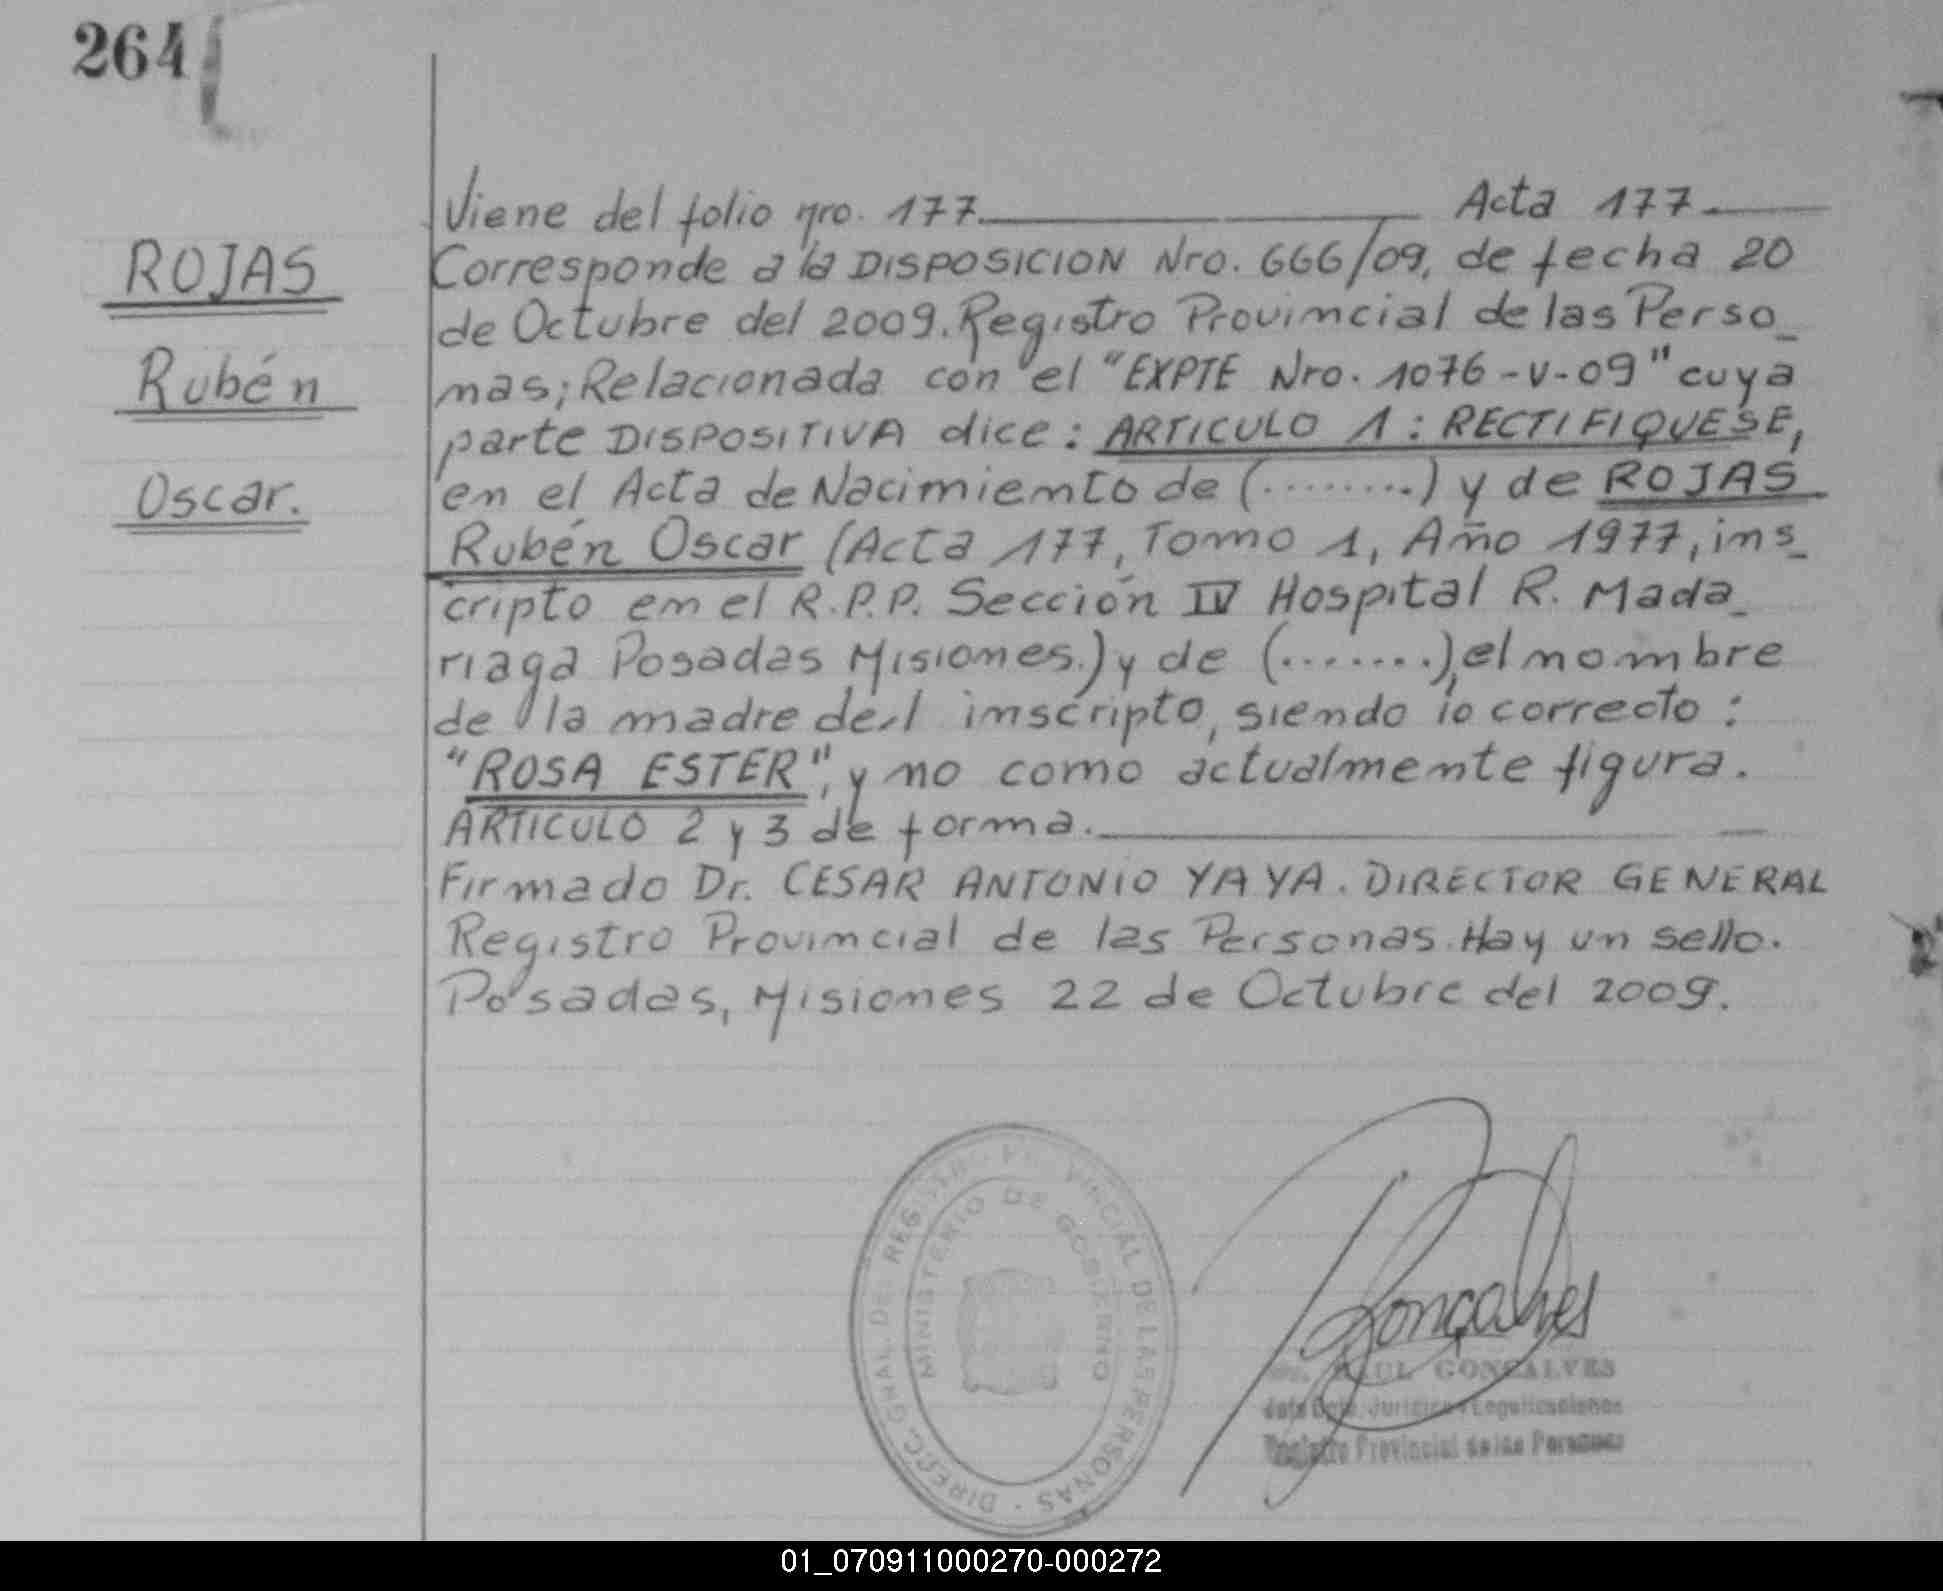 264
ROJAS
Rubén
Oscar.
Viene del folio nro. 177. Acta 177.
Corresponde a la DISPOSICION Nro. 666/09, de fecha 20
de Octubre del 2009. Registro Provincial de las Perso_
nas; Relacionada con el "EXPTE Nro. 1076-V-09" cuya
parte DISPOSITIVA dice: ARTICULO 1: RECTIFIQUESE,
en el Acta de Nacimiento de (........) y de ROJAS
Rubén Oscar (Acta 177, Tomo 1, Año 1977, ins_
cripto en el R.P.P. Sección IV Hospital R. Mada_
riaga Posadas Misiones.) y de (.......), el nombre
de la madre del inscripto, siendo lo correcto:
"ROSA ESTER", y no como actualmente figura.
ARTICULO 2 y 3 de forma.
Firmado Dr. CESAR ANTONIO YAYA. DIRECTOR GENERAL
Registro Provincial de las Personas. Hay un sello.
Posadas, Misiones 22 de Octubre del 2009.
DIREC. GRAL DE REGISTRO PROVINCIAL DE LAS PERSONAS
MINISTERIO DE GOBIERNO
Gonçalves
RAUL GONCALVES
Jefe Dpto. Jurídico y Legalizaciones
Registro Provincial de las Personas
01_070911000270-000272